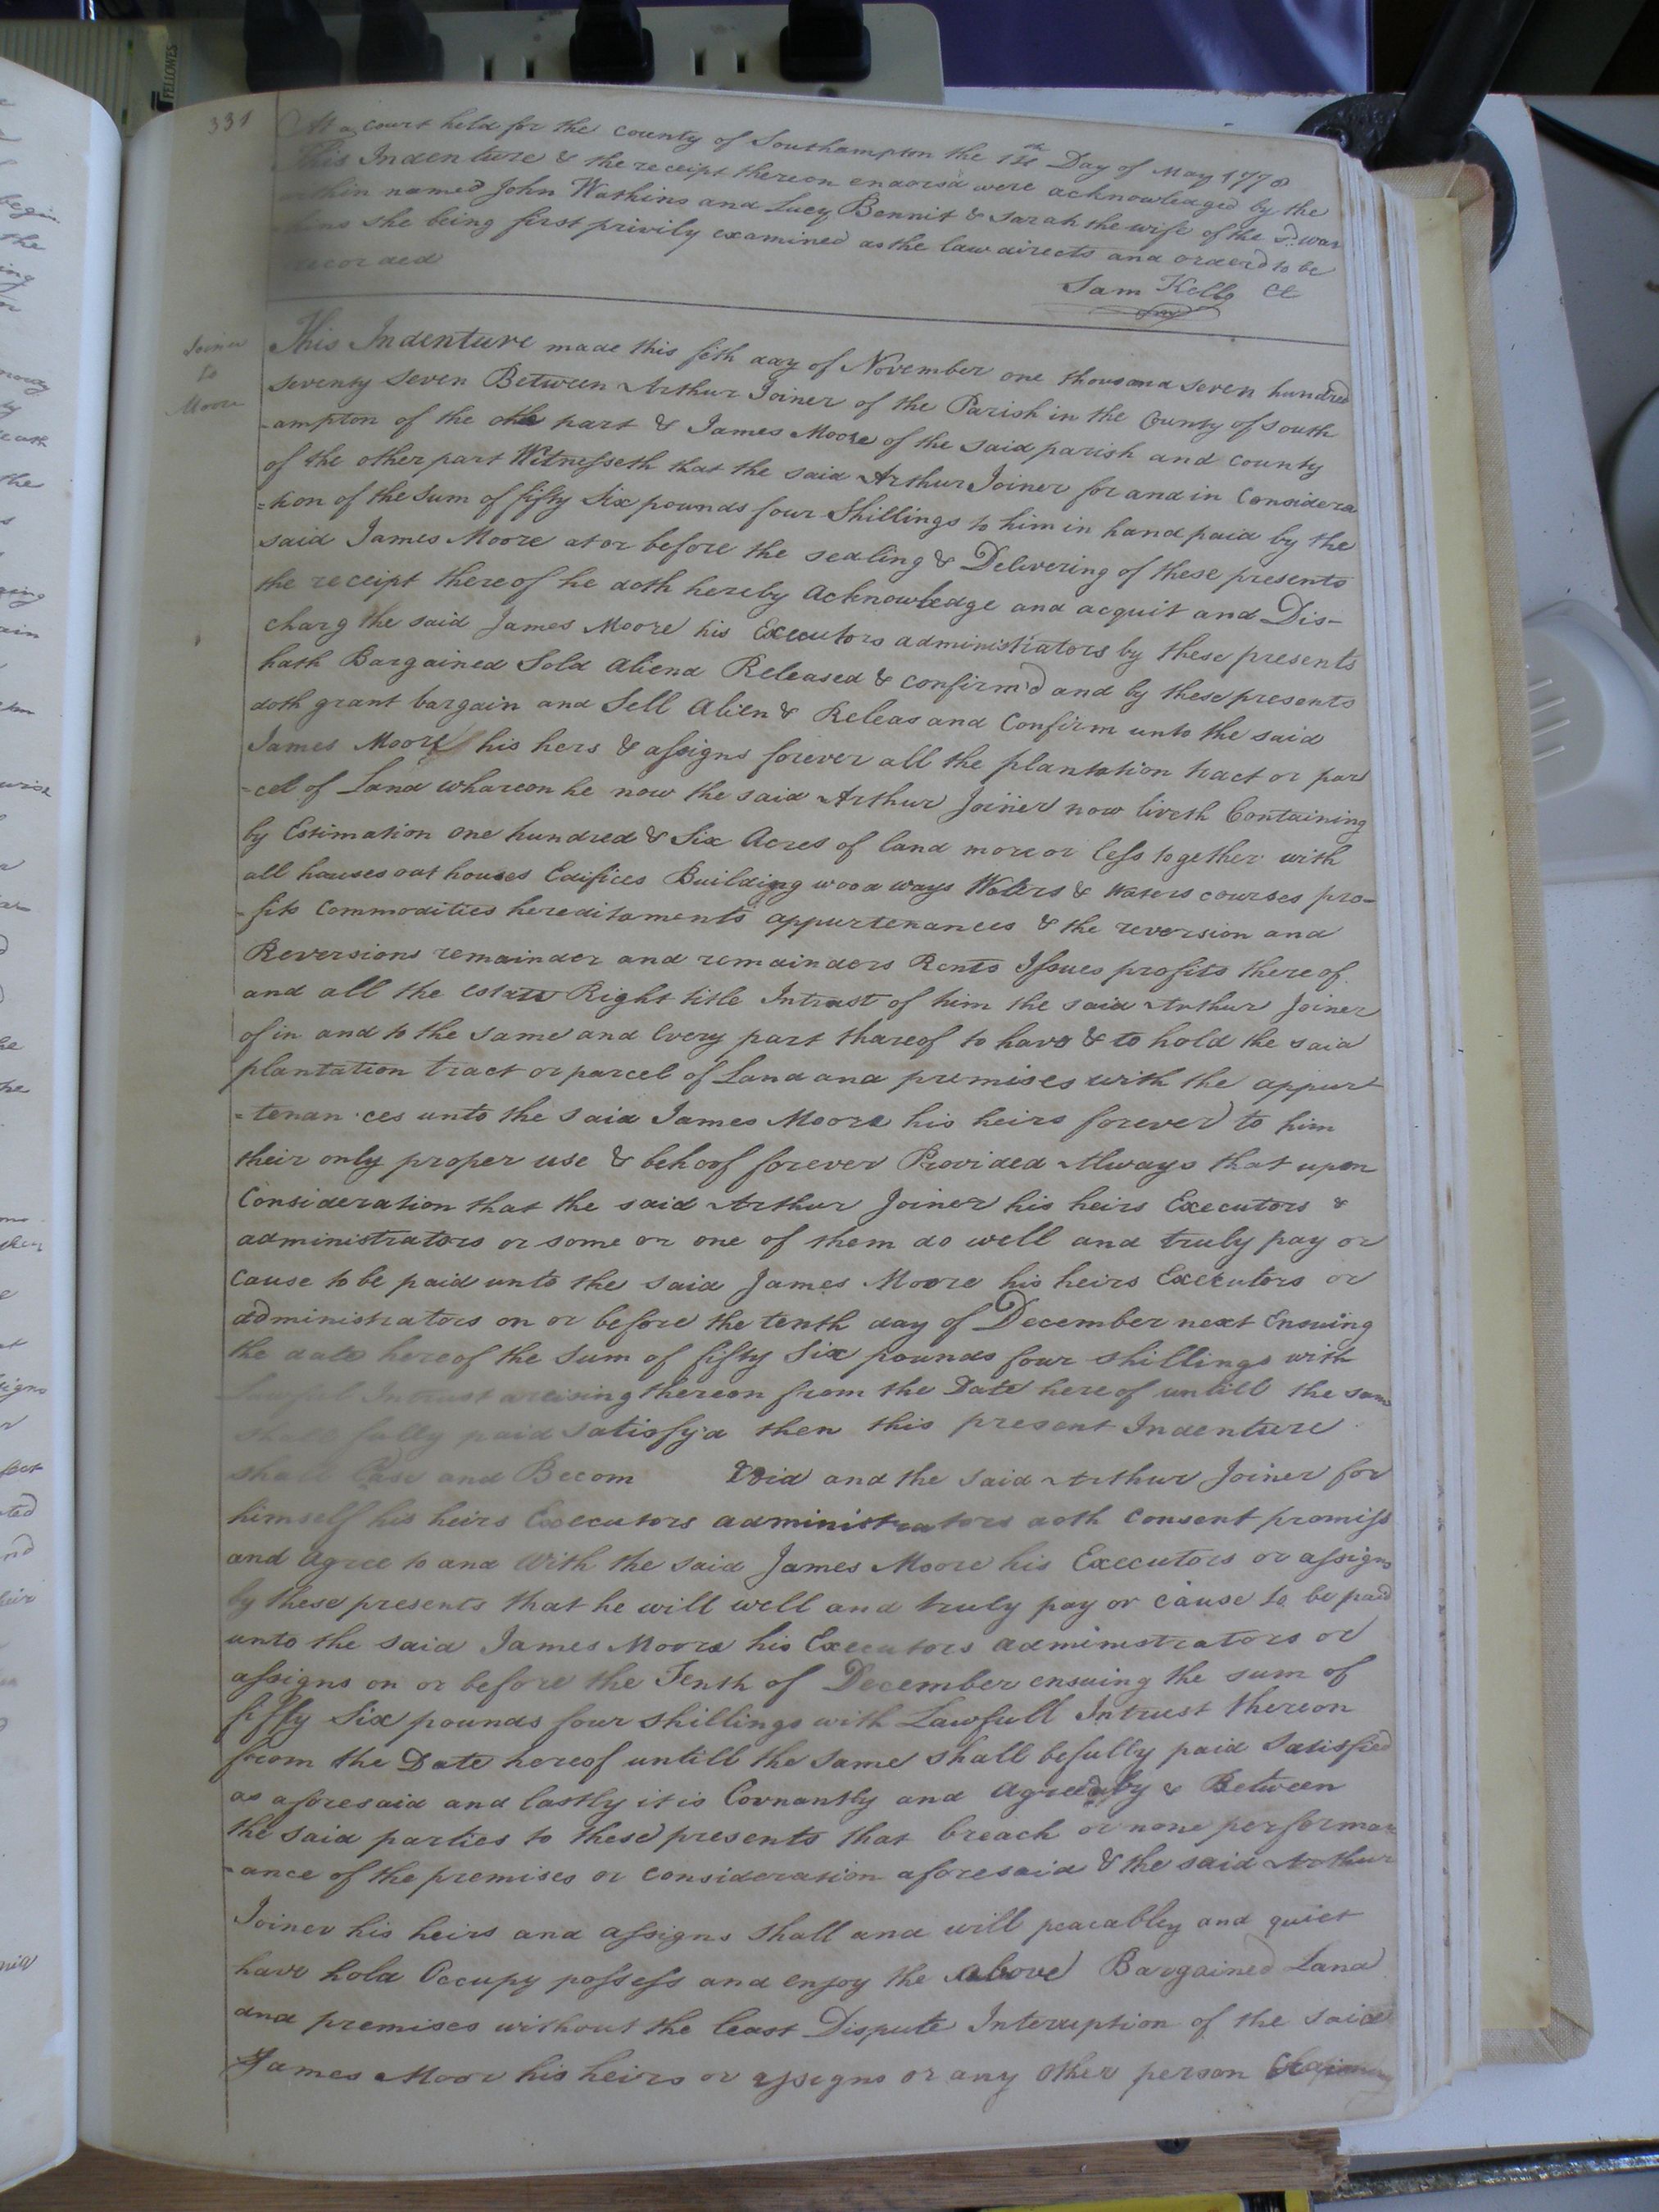 FELLOWES
331
At a court held for the county of Southampton the 14th Day of May 1778
This Indenture & the receipt thereon endorsd were acknowledged by the
within named John Watkins and Lucy Bennit & Sarah the wife of the sd. Wat
kins she being first privily examined as the law directs and orderd to be
recorded
Sam Kello Cl
Joiner
to
Moore
This Indenture made this fith day of November one thousand seven hundred
seventy seven Between Arthur Joiner of the Parish in the County of South
-ampton of the one part & James Moore of the said parish and county
of the other part Witnesseth that the said Arthur Joiner for and in Considera
=tion of the Sum of fifty Six pounds four Shillings to him in hand paid by the
said James Moore at or before the sealing & Delivering of these presents
the receipt thereof he doth hereby Acknowledge and acquit and Dis-
charg the said James Moore his Executors administrators by these presents
hath Bargained Sold aliend Released & confirm'd and by these presents
doth grant bargain and Sell Alien & Releas and Confirm unto the said
James Moore his hers & assigns forever all the plantation tract or par
-cel of Land whareon he now the said Arthur Joiner now liveth Containing
by Estimation one hundred & Six Acres of land more or less together with
all houses out houses Edifices Building wood ways Waters & waters courses pro-
-fits Commodities hereditaments appurtenances & the reversion and
Reversions remainder and remainders Rents Issues profits there of
and all the estate Right title Intrust of him the said Arthur Joiner
of in and to the same and Every part thareof to have & to hold the said
plantation tract or parcel of Land and premises with the appur
=tenan ces unto the said James Moore his heirs forever to him
their only proper use & behoof forever Provided Always that upon
Consideration that the said Arthur Joiner his heirs Executors &
administrators or some or one of them do well and truly pay or
Cause to be paid unto the said James Moore his heirs Executors or
administrators on or before the tenth day of December next Ensuing
the date hereof the Sum of fifty Six pounds four shillings with
lawful Intrust areising thereon from the Date here of untill the same
shall fully paid satisfy'd then this present Indenture
shall Case and Becom Void and the said Arthur Joiner for
himself his heirs Executors administrators doth Consent promiss
and agree to and With the said James Moore his Executors or assigns
by these presents that he will well and truly pay or cause to be paid
unto the said James Moore his Executors administrators or
assigns on or before the Tenth of December ensuing the sum of
fiffty Six pounds four shillings with Lawfull Intrust thereon
from the Date hereof untill the same shall be fully paid satisfied
as aforesaid and lastly it is Covnantly and Agreed by & Between
the said parties to these presents that breach or none performa
-ance of the premises or consideration aforesaid & the said Arthur
Joiner his heirs and assigns shall and will peacabley and quiet
have hold Occupy possess and enjoy the above Bargained Land
and premises without the least Dispute Interuption of the said
James Moor his heirs or assigns or any other person Claiming